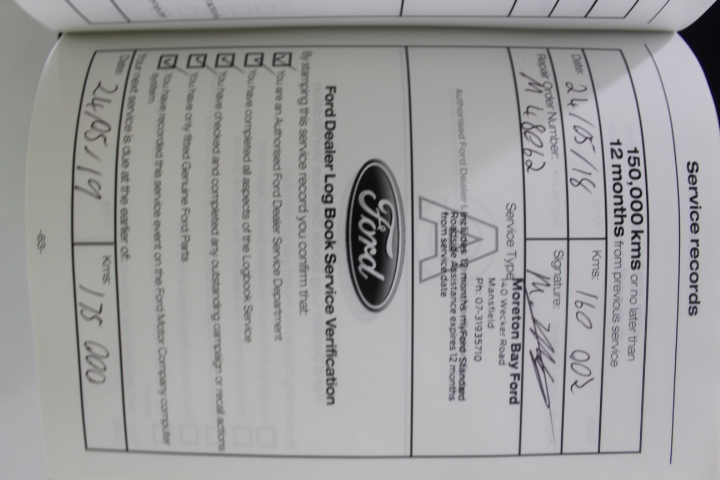 Service records
150,000 kms or no later than
12 months from previous service
Date: 24/05/18
Kms: 160 002
Repair Order Number: M48062
Signature:
Service Type
Moreton Bay Ford
140 Wecker Road
Mansfield
Ph: 07-31935710
Authorised Ford Dealer
Includes 12 months myFord Standard
Roadside Assistance expires 12 months
from service date
A
Ford
Ford Dealer Log Book Service Verification
By stamping this service record you confirm that:
You are an Authorised Ford Dealer Service Department
You have completed all aspects of the Logbook Service
You have checked and completed any outstanding campaign or recall actions
You have only fitted Genuine Ford Parts
You have recorded this service event on the Ford Motor Company computer
system
Your next service is due at the earlier of:
Date: 24/05/19
Kms: 175 000
-63-